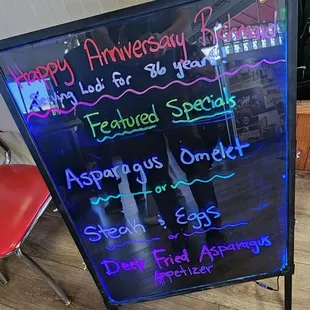 Happy Anniversary
Lodi for 86 years
Featured Specials
Asparagus Omelet
or
Steak & Eggs
or
Deep Fried Asparagus
Appetizer